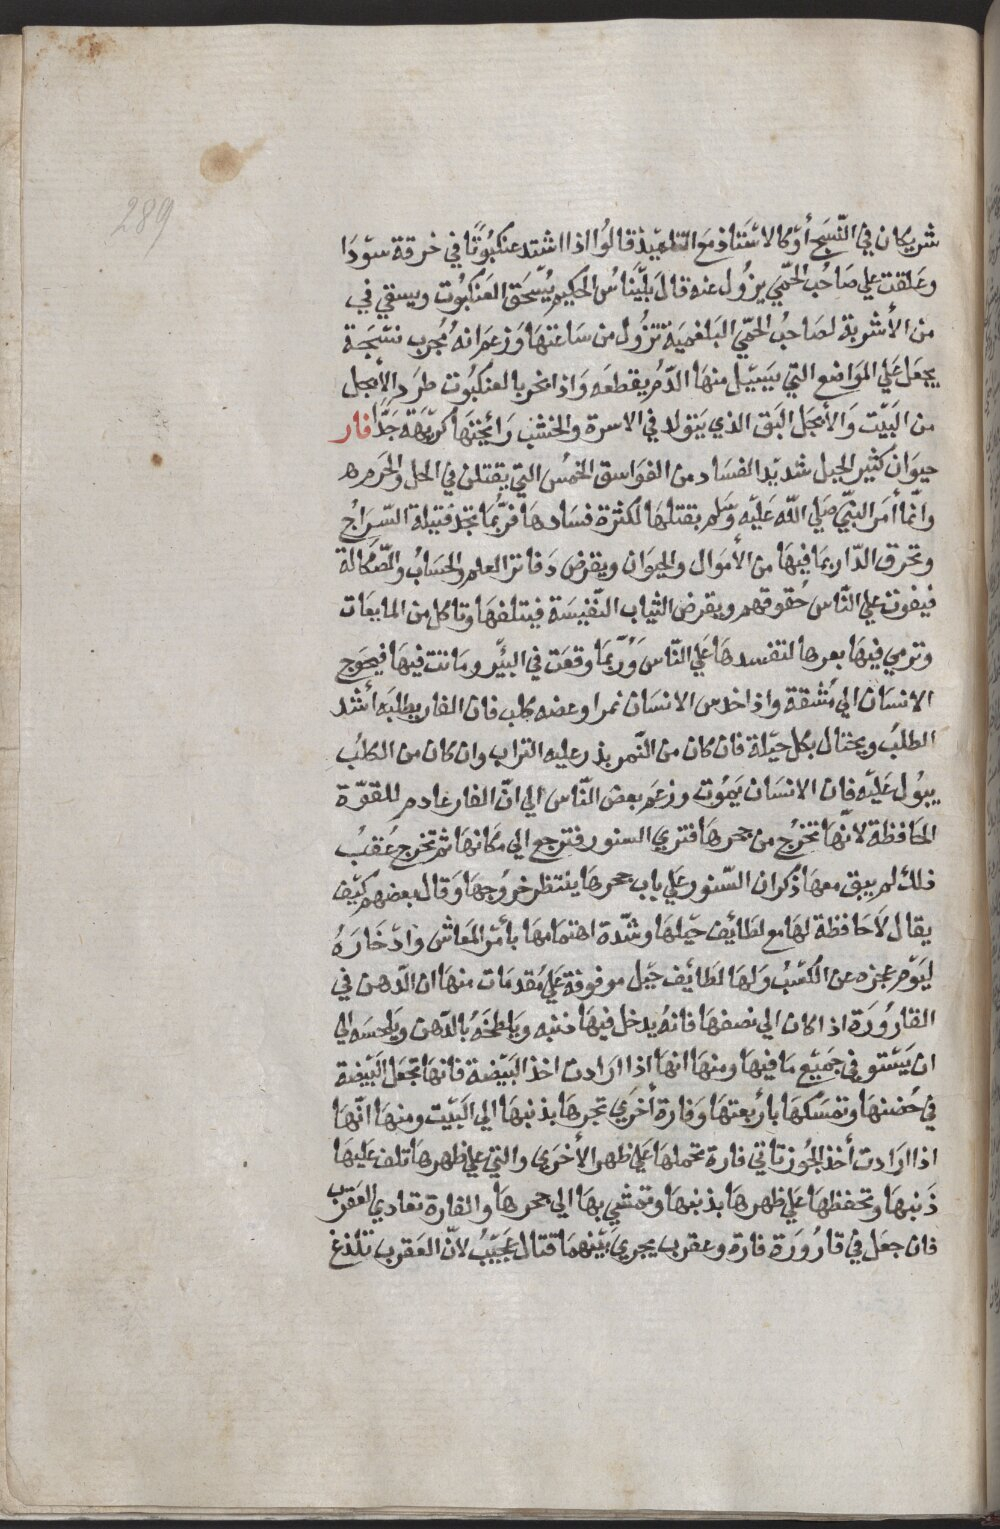 289
شريكان في النّسج أو كالاستاذ مع التلميذ قالوا اذا اشتد عنكبوتًا في خرقة سودا
وعلقت علي صاحب الحمّي يزول عنه قال بلّيناس الحكيم يُسحق العنكبوت ويسقي في
من الأشربة لصاحب الحمّي البلغمية تزول من ساعتها وزعم انه مُجرب نسجة
يجعل علي المواضع التي يسيل منها الدّم يقطعه واذا بخر بالعنكبوت طرد الأبجل
من البيت والأبجل البق الذي يتولد في الاسرة والخشب رائحتها كريهة جدًّا فار
حيوان كثير الحيل شديد الفساد من الفواسق الخمس التي يقتلن في الحل والحرم ه
وانّما أمر النبيّ صلي اللّه عليه وسلم بقتلها لكثرة فسادها فربّما تجد فتيلة السّراج
وتحرق الدّار بما فيها من الأموال والحيوان ويقرض دفاتر العلم والحساب والصّكالة
فيفوت علي النّاس حقوقهم ويقرض الثياب النّفيسة فيتلفها وتاكل من المايعات
وترمي فيها بعرها لتفسدها علي النّاس وربّما وقعت في البئر وماتت فيها فيحوج
الانسان الي مشقة واذا خدس الانسان نمرا وعضه كلب فان الفار يطلبه أشد
الطلب ويحتال بكل حيلة فان كان من النّمر يذر عليه التراب وان كان من الكلب
يبول عليه فان الانسان يموت وزعم بعض النّاس الي انّ الفار عادم للقوّة
الحافظة لانّها تخرج من جحرها فتري السنور فترجع الي مكانها ثم تخرج عقب
ذلك لم يبق معها ذكر ان السّنور علي باب جحرها ينتظر خروجها وقال بعضهم كيف
يقال لاحافظة لها مع لطائف حيلها وشدّة اهتمامها بأمر المعاش وادّخاره
ليوم عجزه عن الكسب ولها لطائف حيل موقوفة علي مقدمات منها ان الدّهن في
القارورة اذا كان الي نصفها فانه يدخل فيها ذنبه ويلطخه بالدّهن ويلحسه الي
ان يستوفي جميع ما فيها ومنها انها اذا ارادت اخذ البيضة فانها تجعل البيضة
في حضنها وتمسكها بأربعتها وفارة أخري تجرها بذنبها الي البيت ومنها انّها
اذا ارادت أخذ الجوز تاتي فارة تحملها علي ظهر الأخري والتي علي ظهرها تلف عليها
ذنبها وتحفظها علي ظهرها بذنبها وتمشي بها الي جحرها والفارة تعادي العقرب
فان جعل في قارورة فارة وعقرب يجري بينهما قتال عجيب لانّ العقرب تلذغ